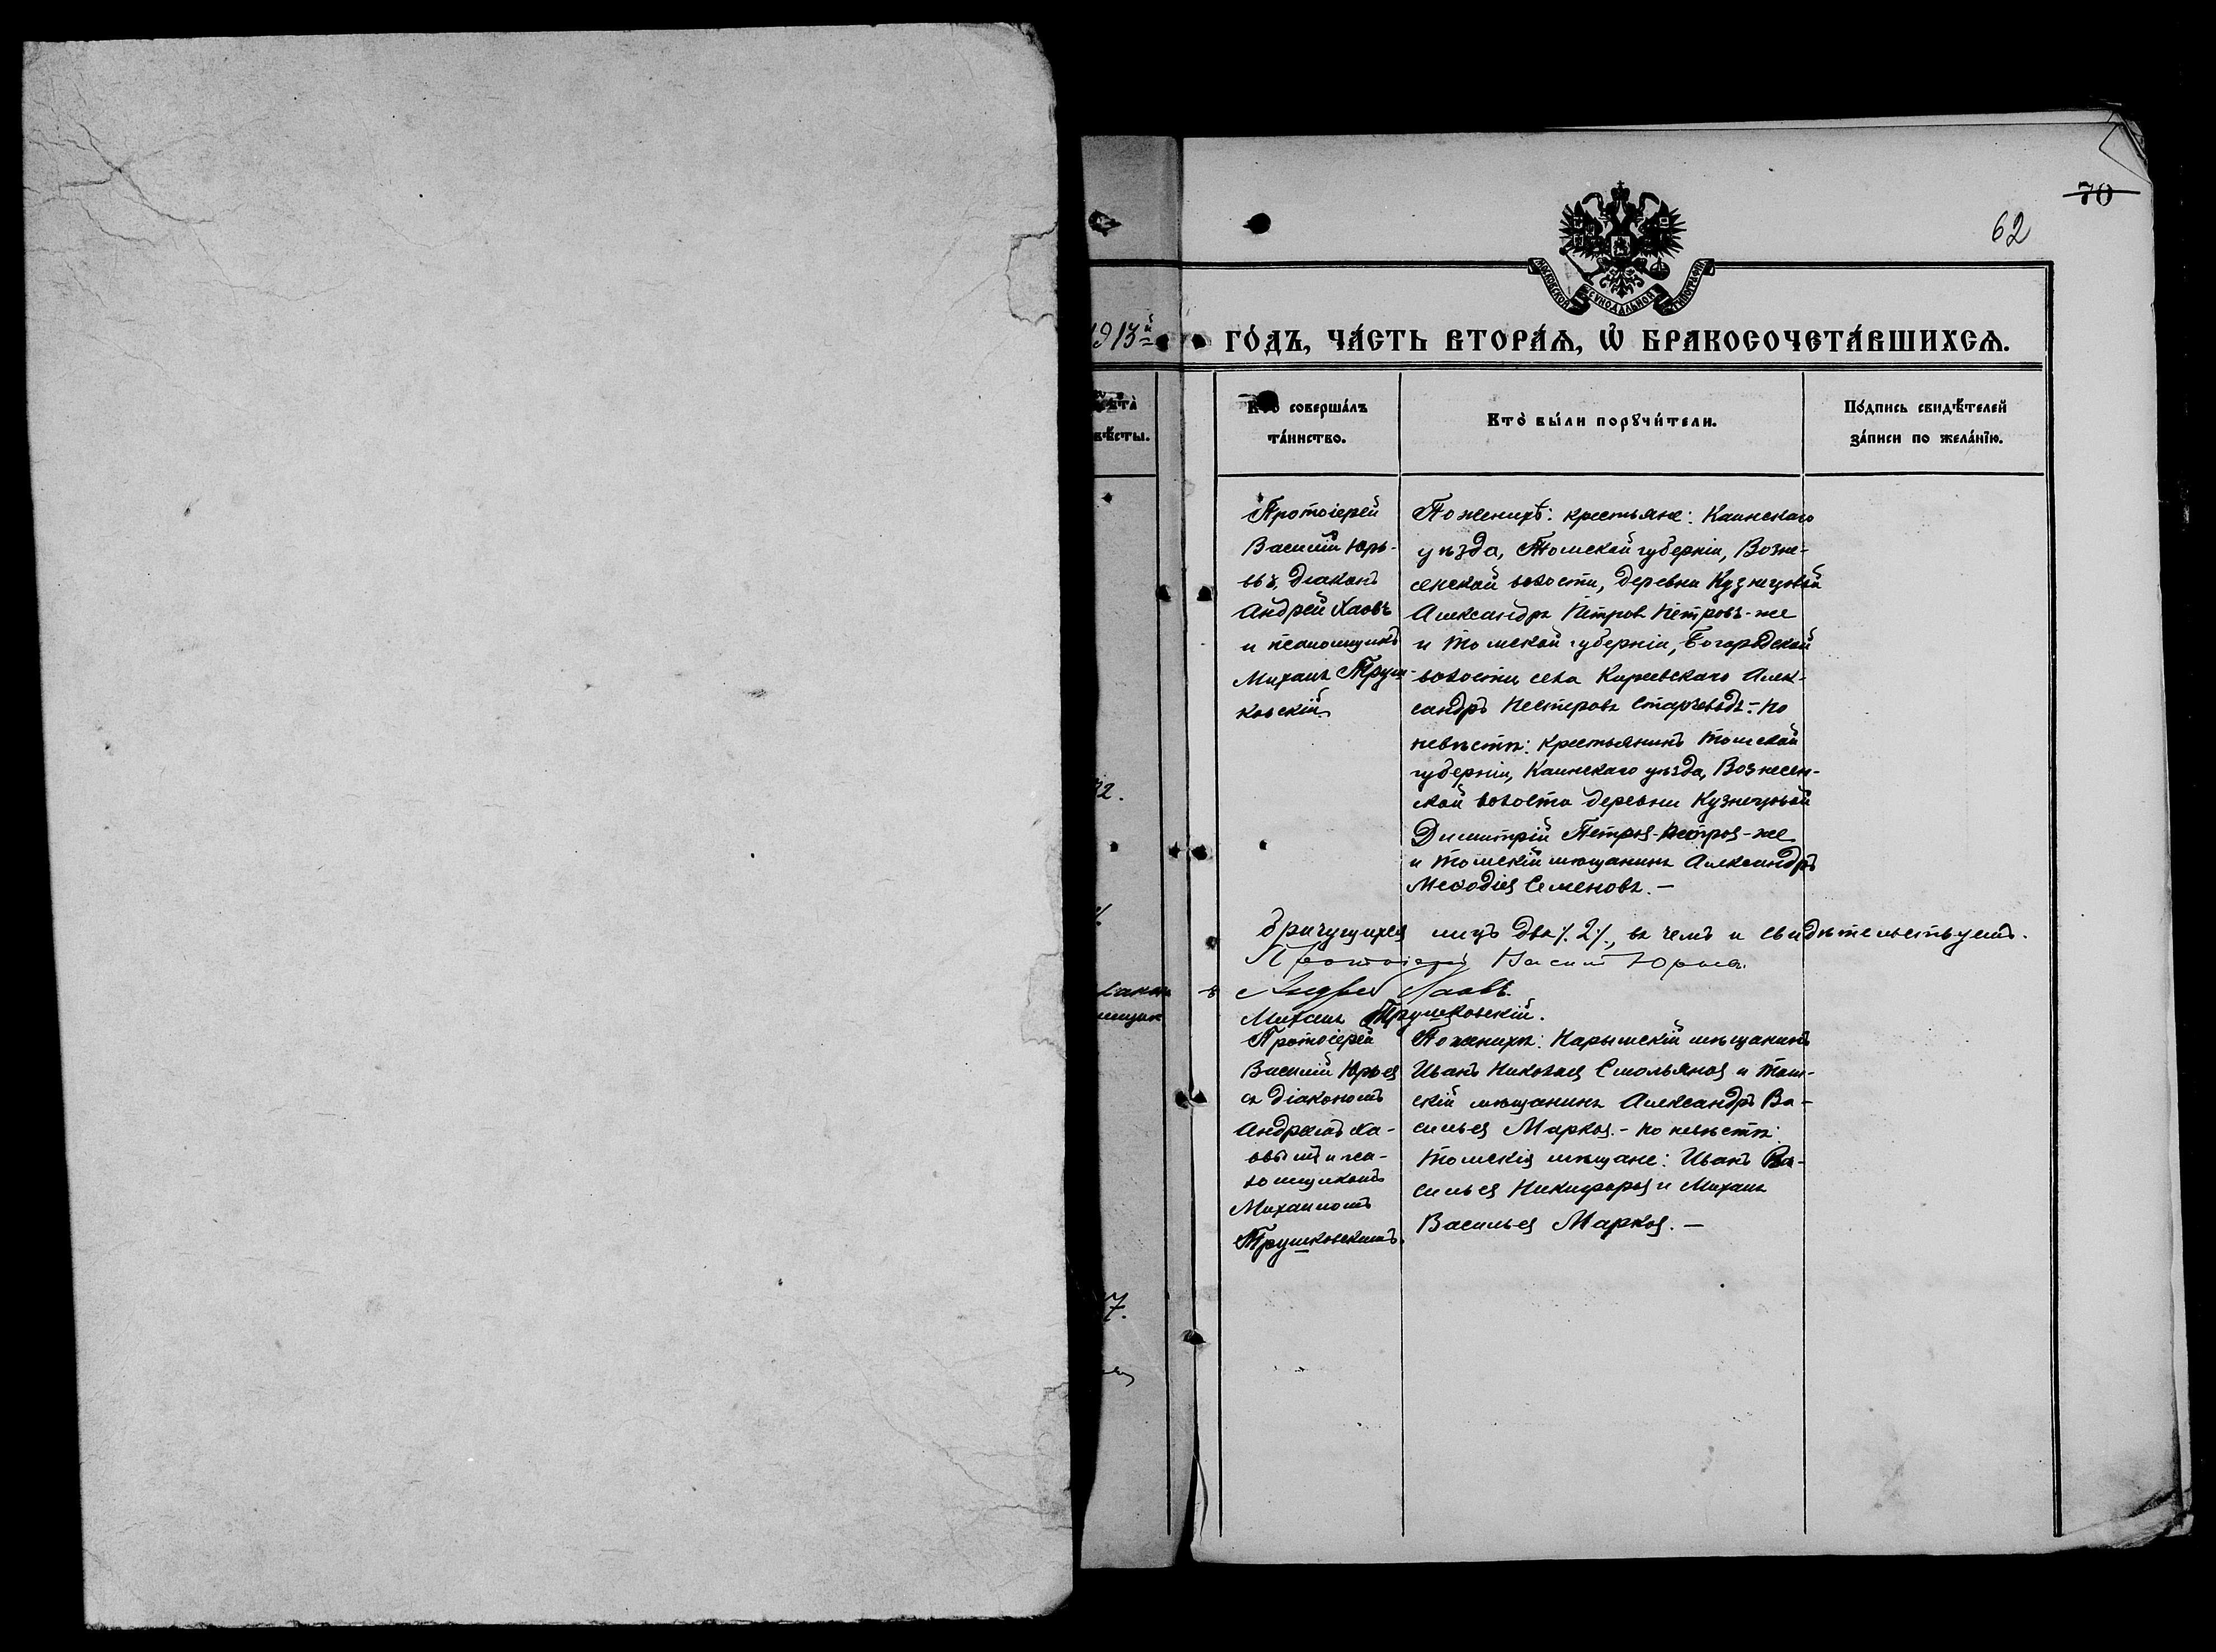 70
62
МОСКОВСКОЙ СѴНОДАЛЬНОЙ ТИПОГРАФІИ
1913й ГО́ДЪ, ЧА́СТЬ ВТОРА́Ѧ, Ѡ҆ БРАКОСОЧЕТА́ВШИХСѦ.
Кто̀ соверша́лъ
та́инство.
Кто̀ бы́ли порꙋчи́тели.
По́дпись свидѣ́телей
за́писи по жела́нїю.
вѣсты.
Протоіерей
Василій Юрь-
евъ, діаконъ
Андрей
и псаломщикъ
Михаилъ Труш-
ковскій
По женихѣ: крестьяне: Каинскаго
уѣзда, Томской губерніи, Возне-
сенской волости, деревни Кузнецовой
Александръ Петровъ Петровъ-же
и Томской губерніи, Богородской
волости села Киреевскаго Алек-
сандръ Нестеровъ - по
невѣстѣ: крестьянинъ Томской
губерніи, Каинскаго уѣзда, Вознесен-
ской волости деревни Кузнецовой
Димитрій Петровъ-Петровъ-же
и Томскій мѣщанинъ Александръ
Меѳодіевъ Семеновъ. —
Брачущихся лицъ два /. 2 /., въ чемъ и свидѣтельствуемъ.
Протоіерей Василій Юрьевъ.
Андрей
Михаилъ Трушковскій.
Протоіерей
Василій Юрьевъ
съ діакономъ
Андреемъ
и пса-
ломщикомъ
Михаиломъ
Трушковскимъ.
По женихѣ: Нарымскій мѣщанинъ
Иванъ Николаевъ Смольяновъ и Том-
скій мѣщанинъ Александръ Ва-
сильевъ Марковъ. - по невѣстѣ:
Томскіе мѣщане: Иванъ Ва-
сильевъ Никифоровъ и Михаилъ
Васильевъ Марковъ. —